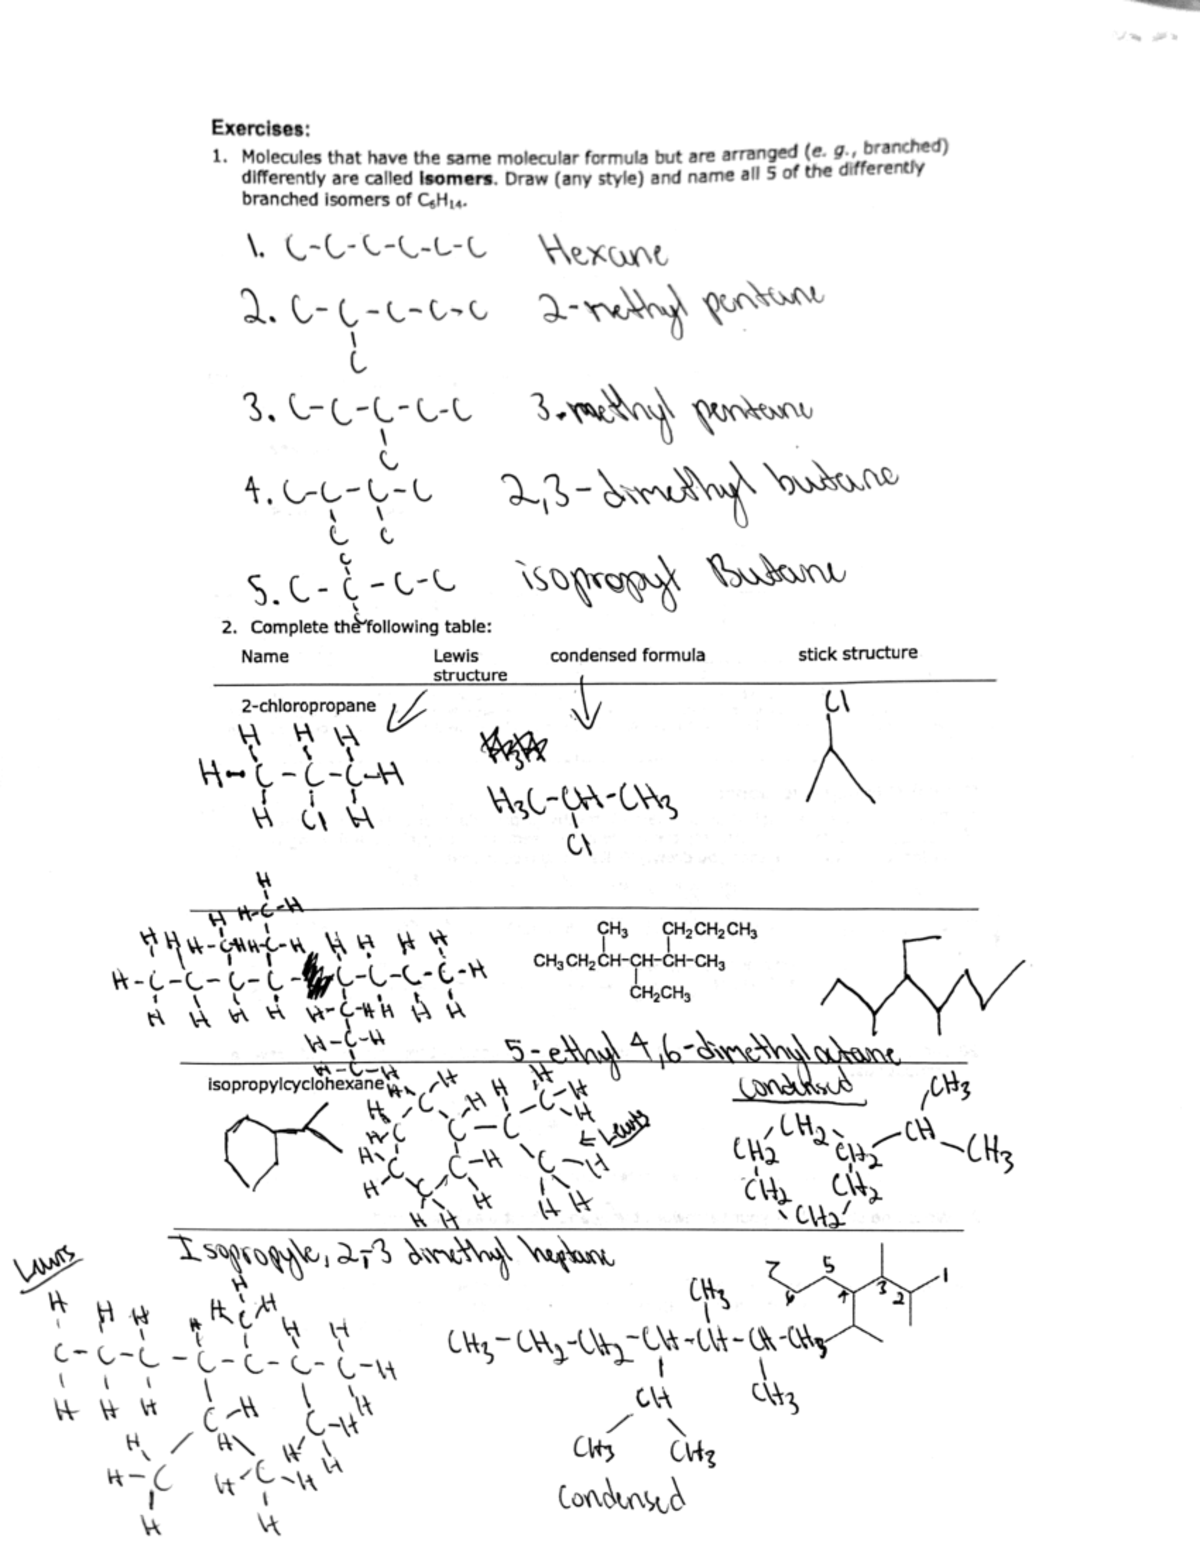 Exercises:
1. Molecules that have the same molecular formula but are arranged (e. g., branched)
differently are called Isomers. Draw (any style) and name all 5 of the differently
branched isomers of C₆H₁₄.
1. C-C-C-C-C-C Hexane
2. C-C-C-C-C 2-methyl pentane
C
3. C-C-C-C-C 3-methyl pentane
C
4. C-C-C-C 2,3-dimethyl butane
C C
C
5. C-C-C-C isopropyl Butane
C
2. Complete the following table:
Name Lewis structure condensed formula stick structure
2-chloropropane
H H H
H-C-C-C-H
H Cl H
H₃C-CH-CH₃
Cl
Cl
H
H-C-H
H-C-C-C-C-C-C-C-C-H
H H H H
H-C-H
H-C-H
CH₃ CH₂CH₂CH₃
CH₃CH₂CH-CH-CH-CH₃
CH₂CH₃
5-ethyl 4,6-dimethyl octane
isopropylcyclohexane
← Lewis
Condensed
CH₃
CH₂ CH
CH₂ CH₂ CH₃
CH₂ CH₂
CH₂
Isopropyle, 2,3 dimethyl heptane
Lewis
H H H
C-C-C-C-C-C-C-H
H H H
C-H
H-C
H
H
7 6 5 4 3 2 1
CH₃
CH₃-CH₂-CH₂-CH-CH-CH-CH₃
CH CH₃
CH₃ CH₃
Condensed